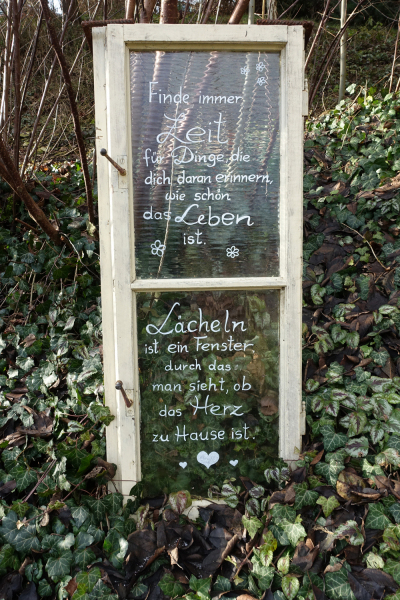 Finde immer
Zeit
für Dinge, die
dich daran erinnern,
wie schön
das Leben
ist.
Lächeln
ist ein Fenster
durch das
man sieht, ob
das Herz
zu Hause ist.